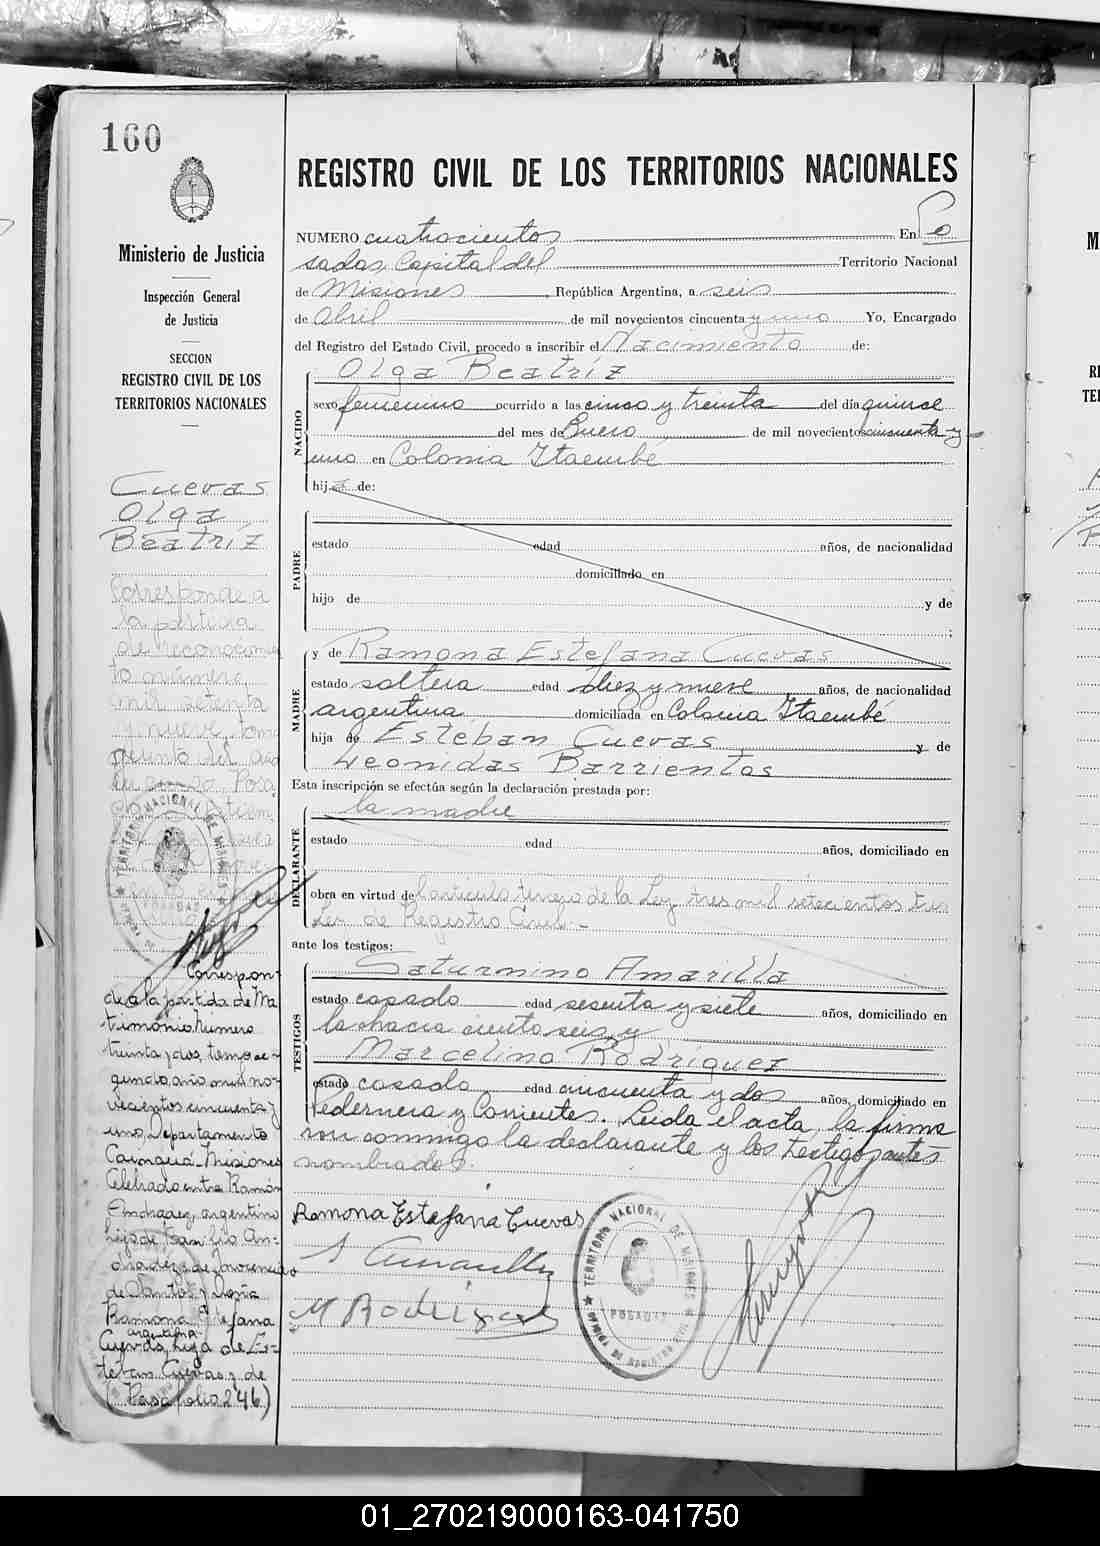 160
Ministerio de Justicia
Inspección General
de Justicia
SECCION
REGISTRO CIVIL DE LOS
TERRITORIOS NACIONALES
Cuevas
Olga
Beatríz
Corresponde a
la partida
de reconocimien
to número
mil setenta
y nueve, tomo
quinto del año
Correspon-
de a la partida de Ma
trimonio. Numero
treinta y dos, tomo se-
gundo, año mil no-
vecientos cincuenta y
uno, Departamento
Cainguá-Misiones
Celebrado entre Ramón
argentino
hijo de
de Santos y Doña
Ramona Estefana
argentina
Cuevas, hija de Es-
teban Cuevas y de
(Pasa folio 246)
REGISTRO CIVIL DE LOS TERRITORIOS NACIONALES
NUMERO cuatrocientos En Po
sadas, Capital del Territorio Nacional
de Misiones, República Argentina, a seis
de Abril de mil novecientos cincuenta y uno Yo, Encargado
del Registro del Estado Civil, procedo a inscribir el Nacimiento de:
Olga Beatríz
NACIDO
sexo femenino ocurrido a las cinco y treinta del día quince
del mes de Enero de mil novecientos cincuenta y
uno en Colonia Itaembé
hija de:
PADRE
estado edad años, de nacionalidad
domiciliado en
hijo de y de
;
y de Ramona Estefana Cuevas
MADRE
estado soltera edad diez y nueve años, de nacionalidad
argentina domiciliada en Colonia Itaembé
hija de Esteban Cuevas y de
Leonidas Barrientos
Esta inscripción se efectúa según la declaración prestada por:
la madre
DECLARANTE
estado edad años, domiciliado en
obra en virtud del artículo tercero de la Ley tres mil setecientos tres
Ley de Registro Civil.-
ante los testigos:
Saturnino Amarilla
TESTIGOS
estado casado edad sesenta y siete años, domiciliado en
la chacra ciento seis y
Marcelino Rodríguez
estado casado edad cincuenta y dos años, domiciliado en
Pedernera y Corrientes. Leida el acta, la firma
ron conmigo la declarante y los testigos antes
nombrados.
Ramona Estefana Cuevas
S Amarilla
M Rodriguez
TERRITORIO NACIONAL DE MISIONES
POSADAS
01_270219000163-041750